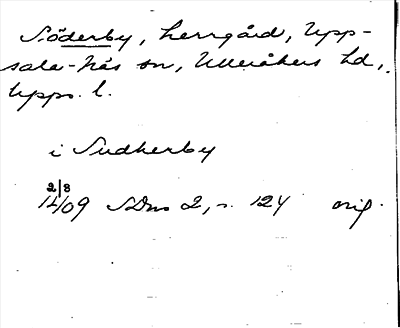 Söderby, herrgård, Upp-
sala-Näs sn, Ulleråkers hd,
Upps. l.
i Sudherby
2/8
1409 SDns 2, s. 124 orig.